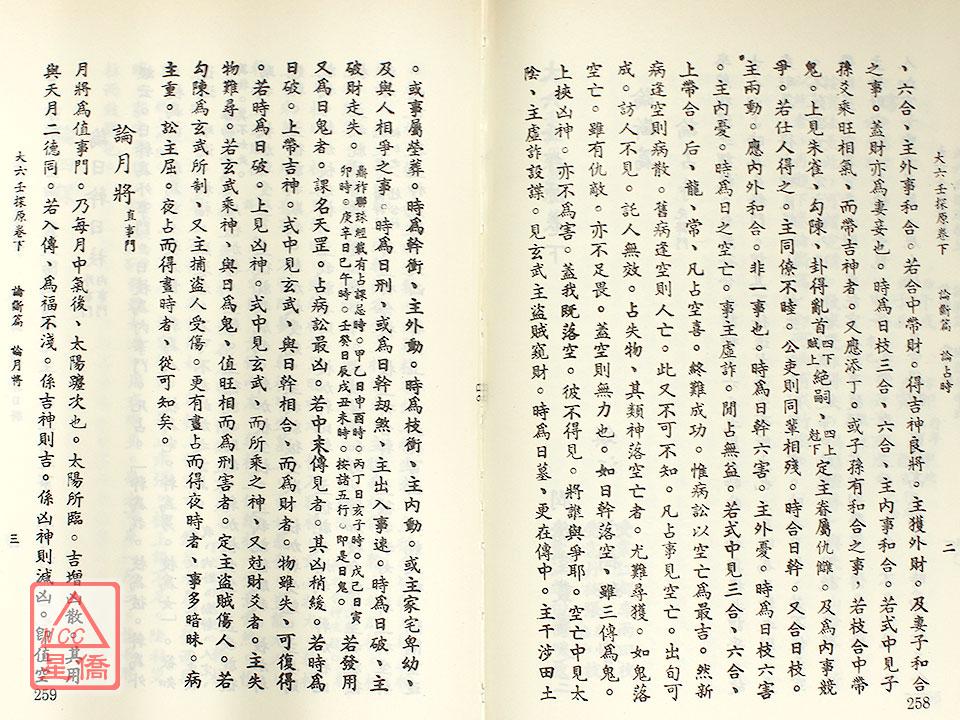 大六壬探原卷下 論斷篇 論占時 二
、六合、主外事和合。若合中帶財。得吉神良將。主獲外財。及妻子和合
之事。蓋財亦爲妻妾也。時爲日枝三合、六合、主內事和合。若式中見子
孫爻乘旺相氣、而帶吉神者。又應添丁。或子孫有和合之事，若枝合中帶
鬼。上見朱雀、勾陳、卦得亂首四下賊上絕嗣、四上尅下定主眷屬仇讎。及爲內事競
爭。若仕人得之。主同僚不睦。公吏則同輩相殘。時合日幹。又合日枝。
主兩動。應內外和合。非一事也。時爲日幹六害。主外憂。時爲日枝六害
。主內憂。時爲日之空亡。事主虛詐。閒占無益。若式中見三合、六合、
上帶合、后、龍、常、凡占空喜。終難成功。惟病訟以空亡爲最吉。然新
病逢空則病散。舊病逢空則人亡。此又不可不知。凡占事見空亡。出旬可
成。訪人不見。託人無效。占失物、其類神落空亡者。尤難尋獲。如鬼落
空亡。雖有仇敵。亦不足畏。蓋空則無力也。如日幹落空、雖三傳爲鬼。
上挾凶神。亦不爲害。蓋我既落空。彼不得見。將誰與爭耶。空亡中見太
陰、主虛詐設謀。見玄武主盜賊窺財。時爲日墓、更在傳中。主干涉田土
258
。或事屬塋葬。時爲幹衝、主外動。時爲枝衝、主內動。或主家宅卑幼、
及與人相爭之事。時爲日刑、或爲日幹刼煞、主出入事速。時爲日破、主
破財走失。鼎祚聯珠經載有占課忌時。甲乙日申酉時。丙丁日亥子時。戊己日寅卯時。庚辛日巳午時。壬癸日辰戌丑未時。按諸五行。即是日鬼。若發用
又爲日鬼者。課名天罡。占病訟最凶。若中末傳見者。其凶稍緩。若時爲
日破。上帶吉神。式中見玄武、與日幹相合、而爲財者。物雖失、可復得
。若時爲日破。上見凶神。式中見玄武、而所乘之神、又尅財爻者。主失
物難尋。若玄武乘神、與日爲鬼、值旺相而爲刑害者。定主盜賊傷人。若
勾陳爲玄武所制、又主捕盜人受傷。更有晝占而得夜時者、事多暗昧。病
主重。訟主屈。夜占而得晝時者、從可知矣。
論月將直事門
月將爲值事門。乃每月中氣後、太陽躔次也。太陽所臨。吉增凶散。其用
與天月二德同。若入傳、爲福不淺。係吉神則吉。係凶神則減凶。即值空
大六壬探原卷下 論斷篇 論月將 三
259
NCC
星僑